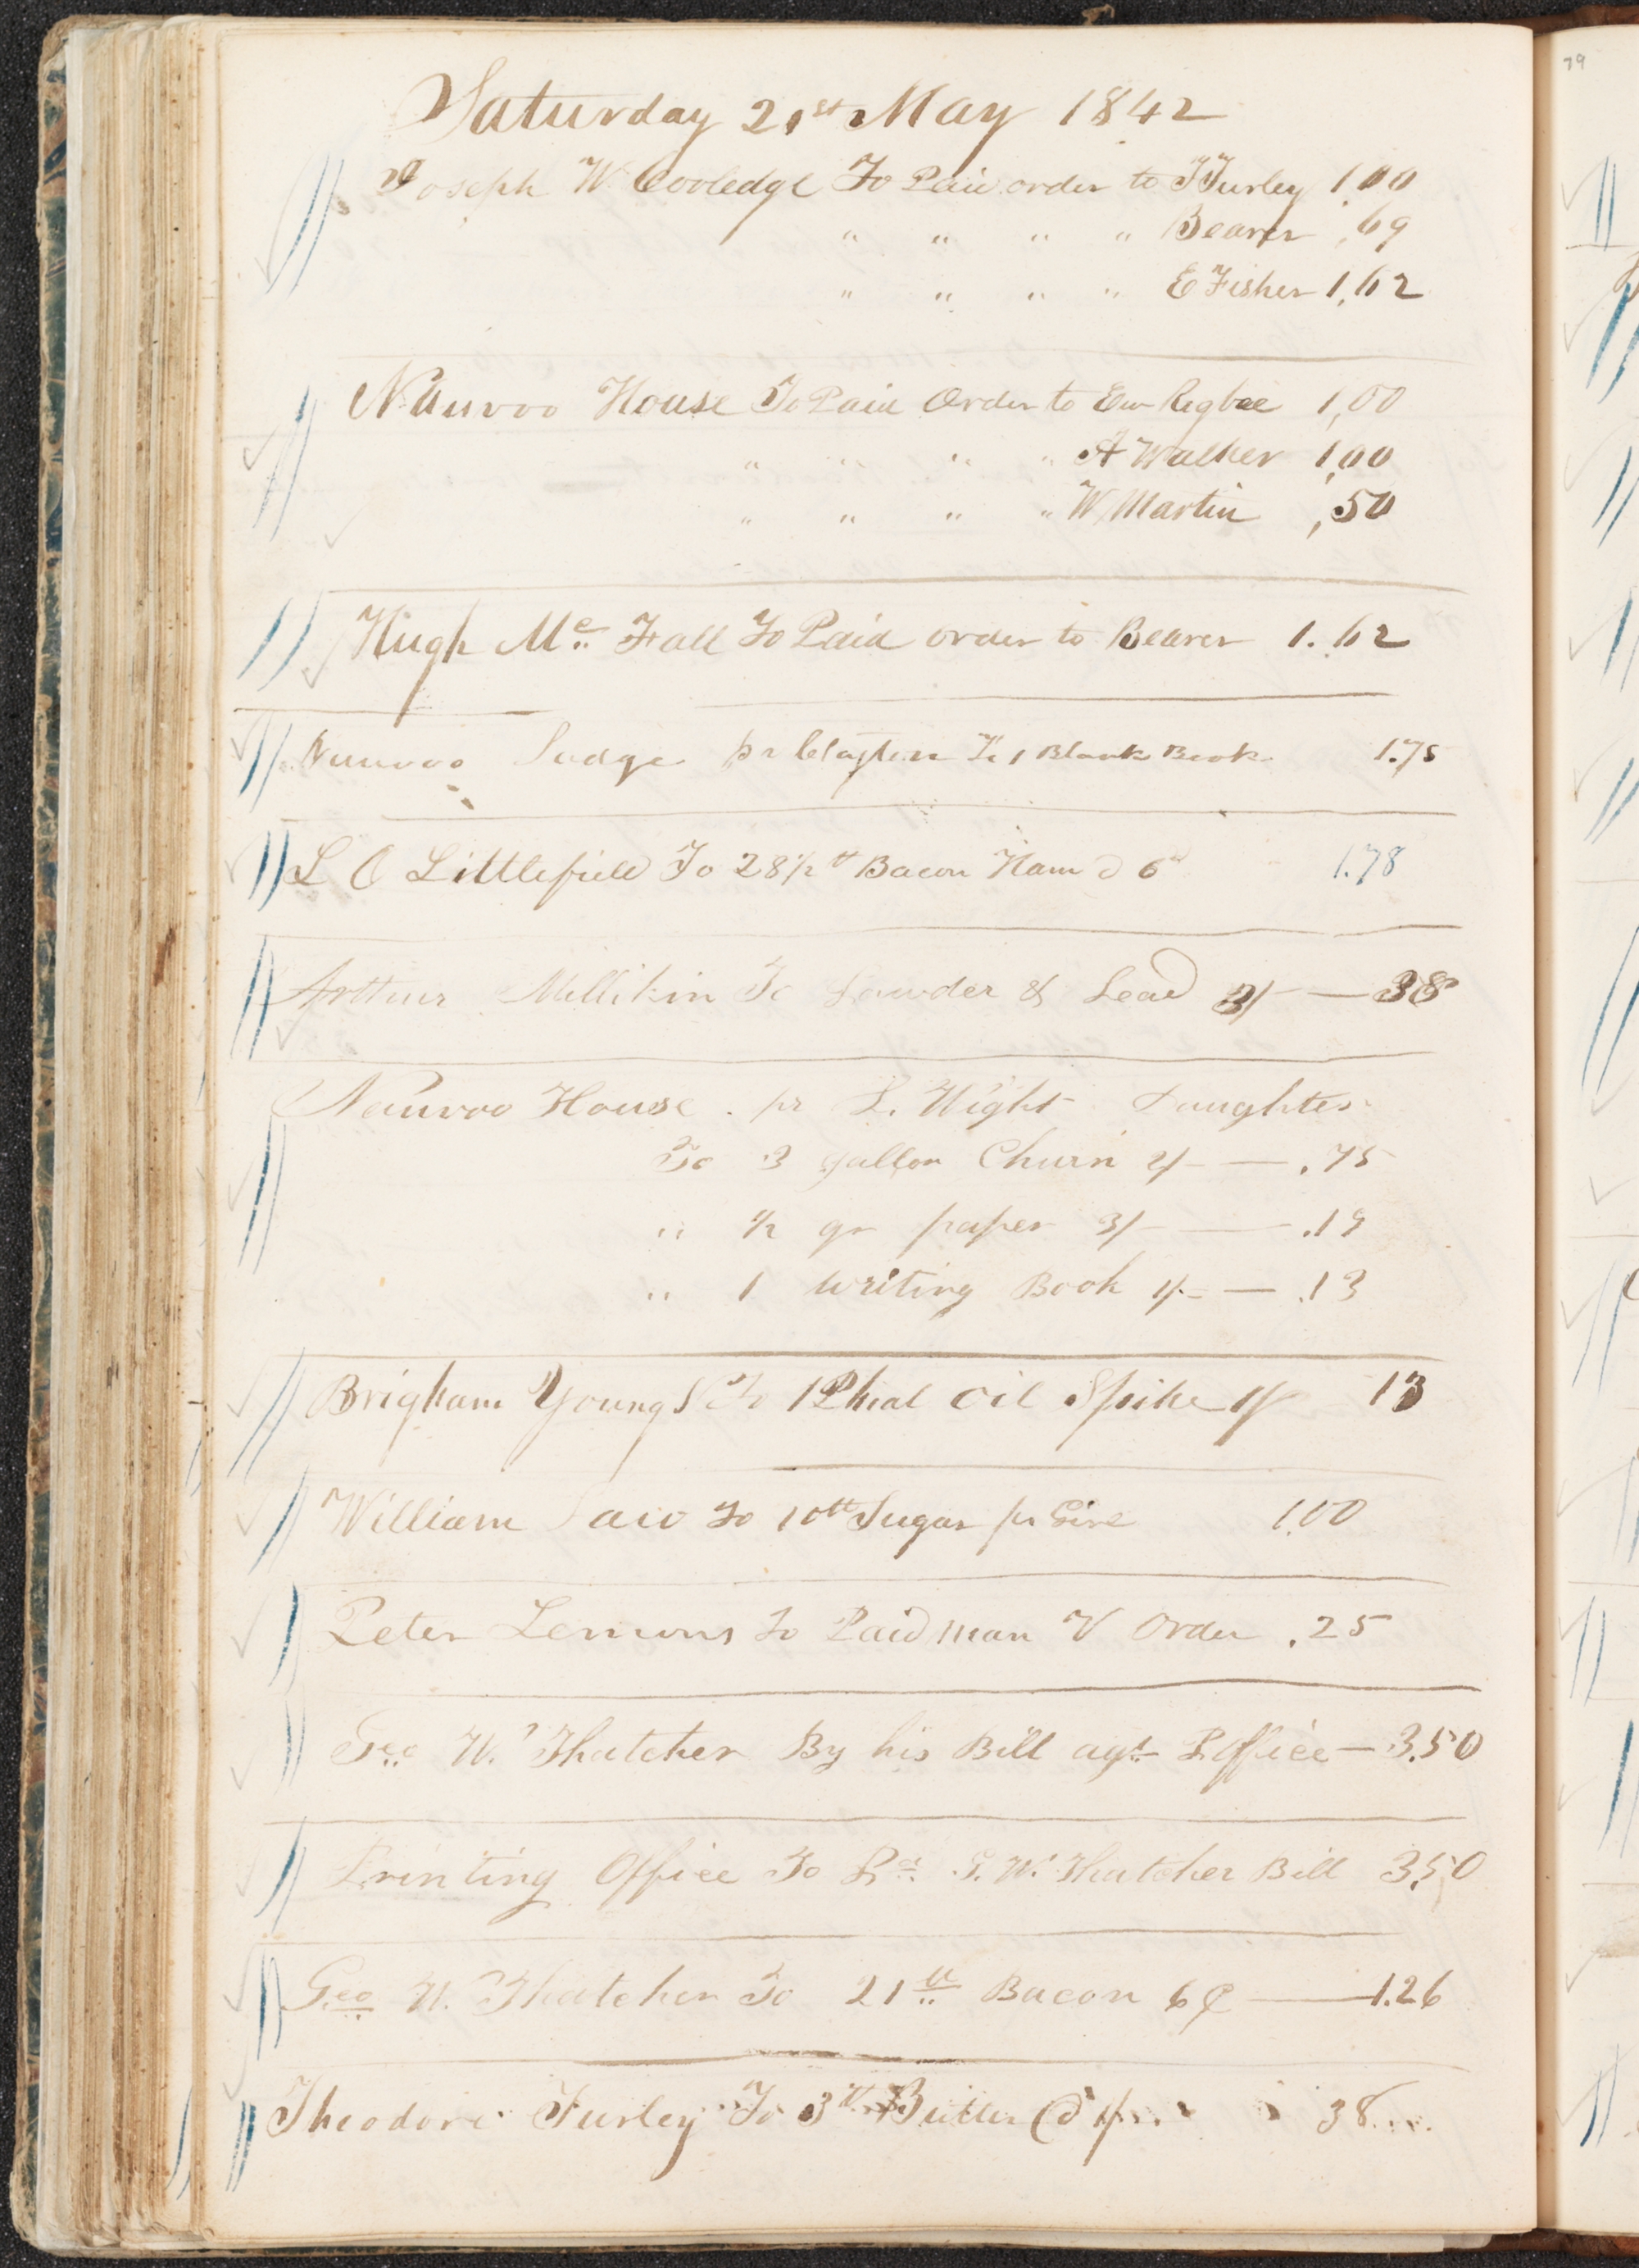 Saturday 21st May 1842
Joseph W Cooledge To Paid order to T Turley 1.00
" " " " Bearer ,69
" " " " E Fisher 1,62
Nauvoo House To Paid Order to Rigbee 1,00
" " " " A Walker 1,00
" " " " W Martin ,50
Hugh Mc Fall To Paid order to Bearer 1.62
Nauvoo Lodge pr Clayton To 1 Blank Book 1.75
L O Littlefield To 28½ lb Bacon Ham @ 6d 1.78
Arthur Millikin To Powder & Lead 3/ — 38
Nauvoo House . pr L. Wight Daughter
To 3 gallon Churn 2/ — .75
" ½ qr paper 3/ — .19
" 1 writing Book 1/- — .13
Brigham Young To 1 Phial Oil Spike 1/ 13
William Law To 10lb Sugar pr 1.00
Peter Lemons To Paid man V Order .25
Geo W. Thatcher By his Bill agt P. Office — 3.50
Printing Office To Pd G. W. Thatcher Bill 3,50
Geo W. Thatcher To 21 lb Bacon 6¢ — 1.26
Theodore Turley To 3 lb Butter @ 1/ 38
79